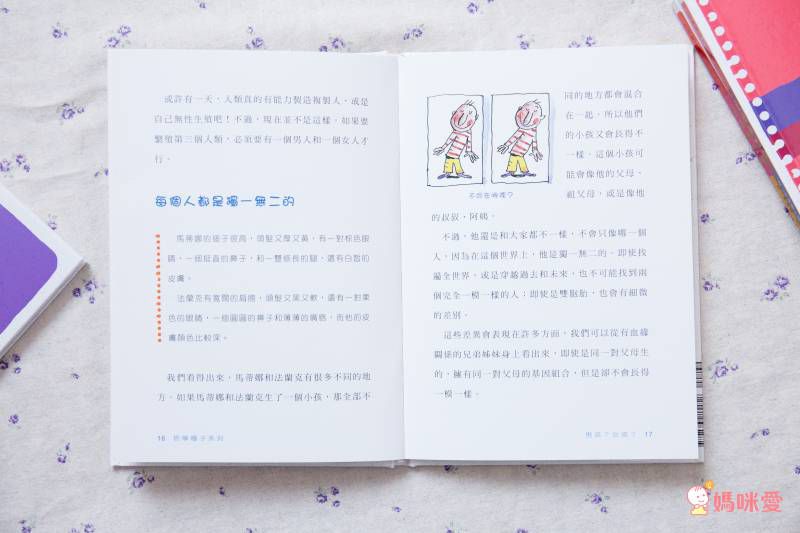 或許有一天，人類真的有能力製造複製人，或是
自己無性生殖吧！不過，現在並不是這樣，如果要
繁殖第三個人類，必須要有一個男人和一個女人才
行。
每個人都是獨一無二的
馬蒂娜的個子很高，頭髮又厚又黃，有一對棕色眼
睛，一個挺直的鼻子，和一雙修長的腿，還有白皙的
皮膚。
法蘭克有寬闊的肩膀，頭髮又黑又軟，還有一對栗
色的眼睛，一個圓圓的鼻子和薄薄的嘴唇，而他的皮
膚顏色比較深。
我們看得出來，馬蒂娜和法蘭克有很多不同的地
方。如果馬蒂娜和法蘭克生了一個小孩，那全部不
16 哲學種子系列
不同在哪裡？
同的地方都會混合
在一起，所以他們
的小孩又會長得不
一樣。這個小孩可
能會像他的父母、
祖父母，或是像他
的叔叔、阿姨。
不過，他還是和大家都不一樣，不會只像哪一個
人，因為在這個世界上，他是獨一無二的。即使找
遍全世界，或是穿越過去和未來，也不可能找到兩
個完全一模一樣的人；即使是雙胞胎，也會有細微
的差別。
這些差異會表現在許多方面，我們可以從有血緣
關係的兄弟姊妹身上看出來，即使是同一對父母生
的，擁有同一對父母的基因組合，但是卻不會長得
一模一樣。
17
媽咪愛